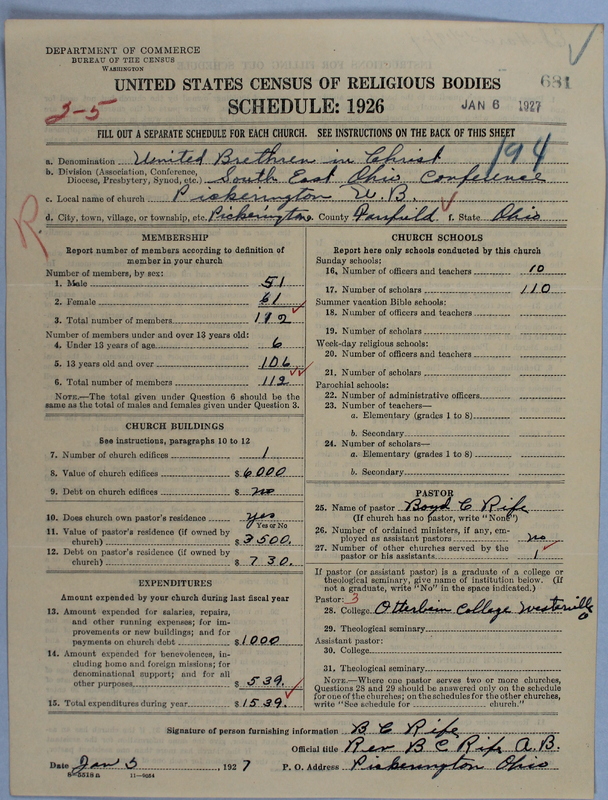 DEPARTMENT OF COMMERCE
BUREAU OF THE CENSUS
WASHINGTON
UNITED STATES CENSUS OF RELIGIOUS BODIES
681
SCHEDULE: 1926
JAN 6 1927
2-5
FILL OUT A SEPARATE SCHEDULE FOR EACH CHURCH. SEE INSTRUCTIONS ON THE BACK OF THIS SHEET
194
a. Denomination United Brethren in Christ
b. Division (Association, Conference, Diocese, Presbytery, Synod, etc.) South East Ohio Conference
c. Local name of church Pickerington U.B.
d. City, town, village, or township, etc. Pickerington County Fairfield f. State Ohio
R
MEMBERSHIP
Report number of members according to definition of
member in your church
Number of members, by sex:
1. Male 51
2. Female 61
3. Total number of members 112
Number of members under and over 13 years old:
4. Under 13 years of age 6
5. 13 years old and over 106
6. Total number of members 112
NOTE.—The total given under Question 6 should be
same as the total of males and females given under Question 3.
CHURCH BUILDINGS
See instructions, paragraphs 10 to 12
7. Number of church edifices 1
8. Value of church edifices $6000
9. Debt on church edifices $ no
10. Does church own pastor's residence yes
Yes or No
11. Value of pastor's residence (if owned by
church) $3500.
12. Debt on pastor's residence (if owned by
church) $ 730.
EXPENDITURES
Amount expended by your church during last fiscal year
13. Amount expended for salaries, repairs,
and other running expenses; for im-
provements or new buildings; and for
payments on church debt $1000
14. Amount expended for benevolences, in-
cluding home and foreign missions; for
denominational support; and for all
other purposes $ 539.
15. Total expenditures during year $1539.
CHURCH SCHOOLS
Report here only schools conducted by this church
Sunday schools:
16. Number of officers and teachers 10
17. Number of scholars 110
Summer vacation Bible schools:
18. Number of officers and teachers
19. Number of scholars
Week-day religious schools:
20. Number of officers and teachers
21. Number of scholars
Parochial schools:
22. Number of administrative officers
23. Number of teachers—
a. Elementary (grades 1 to 8)
b. Secondary
24. Number of scholars—
a. Elementary (grades 1 to 8)
b. Secondary
PASTOR
25. Name of pastor Boyd C Rife
(If church has no pastor, write "None")
26. Number of ordained ministers, if any, em-
ployed as assistant pastors no
27. Number of other churches served by the
pastor or his assistants 1
If pastor (or assistant pastor) is a graduate of a college or
theological seminary, give name of institution below. (if
not a graduate, write "No" in the space indicated.)
Pastor: 3
28. College Otterbein College Westerville O
29. Theological seminary
Assistant pastor:
30. College
31. Theological seminary
NOTE.—Where one pastor serves two or more churches,
Questions 28 and 29 should be answered only on the schedule
for one of the churches; on the schedules for the other churches,
write "See schedule for church."
Signature of person furnishing information B C Rife
Official title Rev B C Rife A.B.
Date Jan 5, 1927 P. O. Address Pickerington Ohio
8-5518a 11-9084